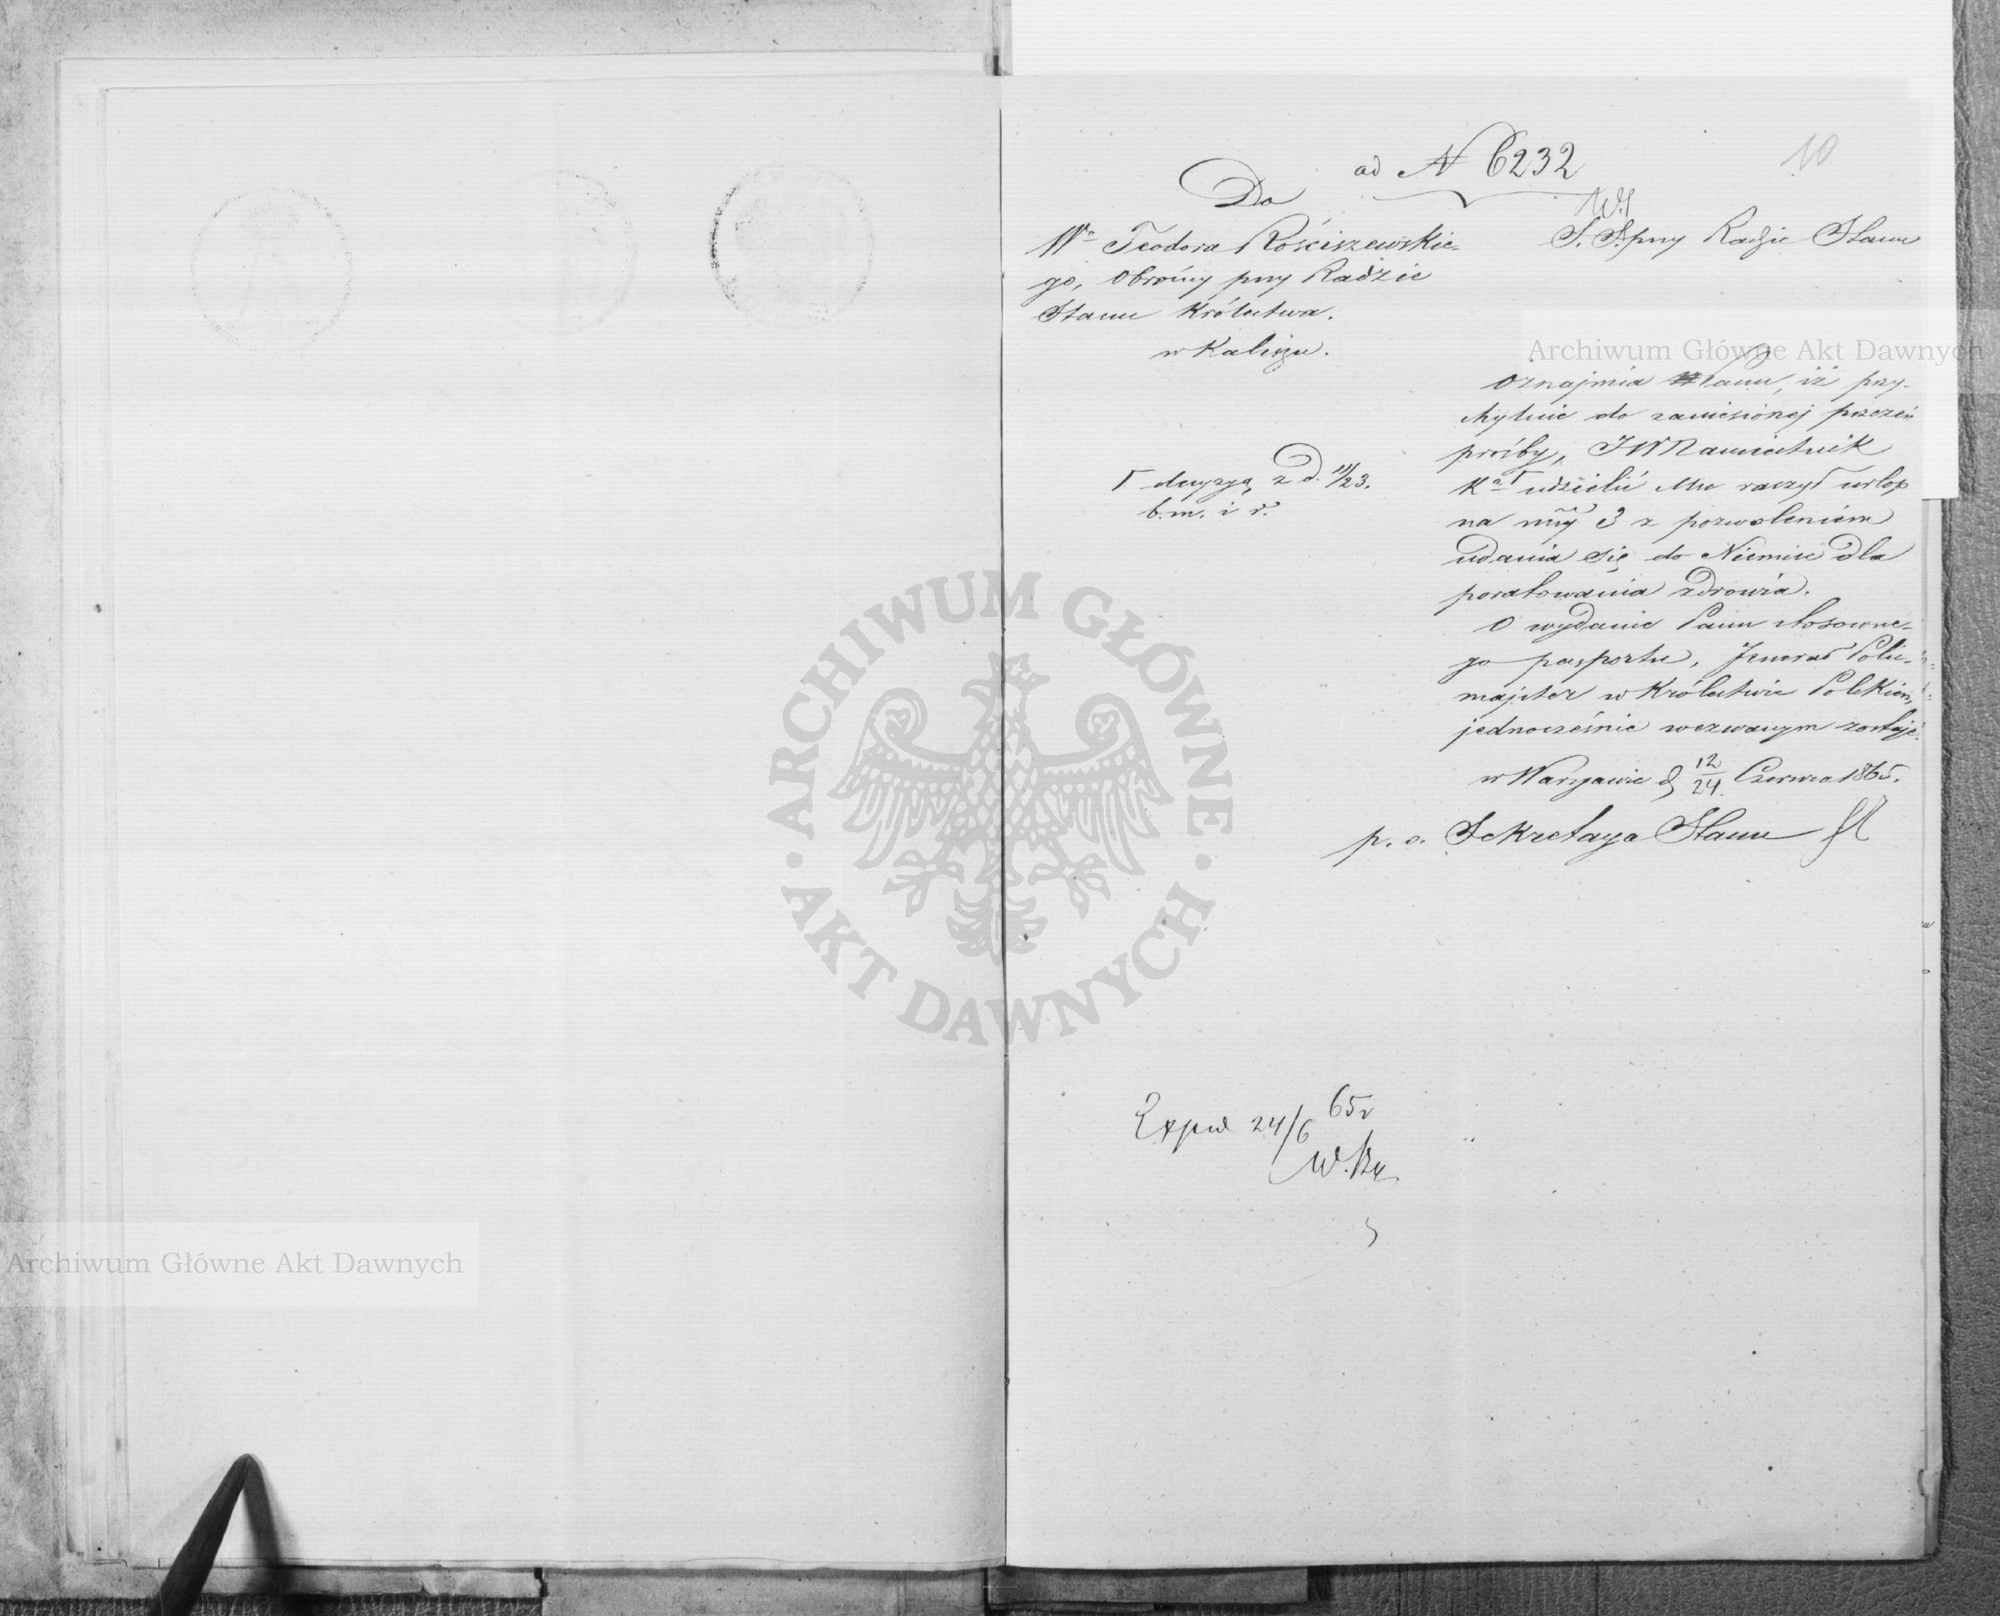 10
ad N 6232
Do
Wo Teodora Rościszewskie-
go, Obrońcy przy Radzie
Stanu Królestwa.
w Kaliszu.
S. S. przy Radzie Stanu
Oznajmia Panu, iż przy-
chylnie do zaniesionej przezeń
prośby, JW Namiestnik
Kr udzielić Mu raczył urlop
na mcy 3 z pozwoleniem
udania się do Niemiec dla
poratowania zdrowia.
O wydanie Panu stosowne-
go paszportu, Jenerał Polic-
majster w Królestwie Polskiem,
jednocześnie wezwanym zostaje.
w Warszawie d 12/24 Czerwca 1865.
p. o. Sekretarza Stanu
Γ decyzyą z d. 11/23.
b. m. i r.
Exped 24/6 65r
Archiwum Główne Akt Dawnych
ARCHIWUM GŁÓWNE
· AKT DAWNYCH ·
Archiwum Główne Akt Dawnych